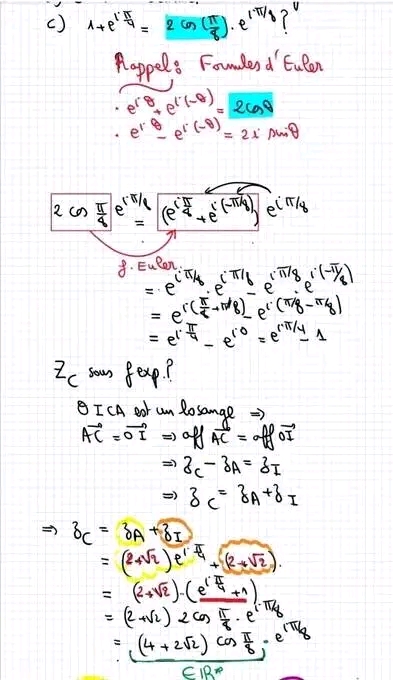 c) 1+e^{iπ/4} = 2 cos(π/8) · e^{iπ/8} ?
Rappel : Formules d'Euler
· e^{iθ} + e^{i(-θ)} = 2cosθ
· e^{iθ} - e^{i(-θ)} = 2i sinθ
2 cos π/8 e^{iπ/8} = (e^{iπ/8} + e^{i(-π/8)}) e^{iπ/8}
f. Euler
= e^{iπ/8} · e^{iπ/8} - e^{iπ/8} · e^{i(-π/8)}
= e^{i(π/8+π/8)} - e^{i(π/8-π/8)}
= e^{iπ/4} - e^{i0} = e^{iπ/4} - 1
Z_C sous f exp.?
OICA est un losange ⇒
AC = OI ⇒ aff AC = aff OI
⇒ z_C - z_A = z_I
⇒ z_C = z_A + z_I
⇒ z_C = z_A + z_I
= (2+√2) e^{iπ/4} + (2+√2).
= (2+√2) · (e^{iπ/4} + 1)
= (2+√2) 2 cos π/8 · e^{iπ/8}
= (4+2√2) cos π/8 · e^{iπ/8}
∈ℝ*